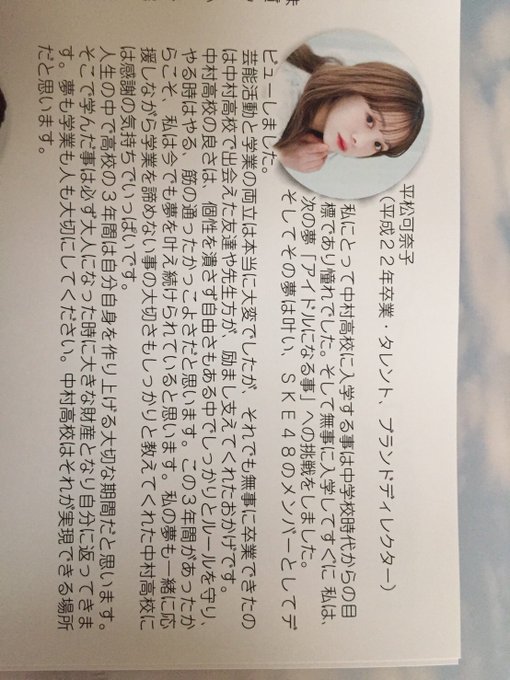 平松可奈子
（平成２２年卒業・タレント、ブランドディレクター）
私にとって中村高校に入学する事は中学校時代からの目
標であり憧れでした。そして無事に入学してすぐに私は、
次の夢「アイドルになる事」への挑戦をしました。
そしてその夢は叶い、ＳＫＥ４８のメンバーとしてデ
ビューしました。
芸能活動と学業の両立は本当に大変でしたが、それでも無事に卒業できたの
は中村高校で出会えた友達や先生方が、励まし支えてくれたおかげです。
中村高校の良さは、個性を潰さず自由さもある中でしっかりとルールを守り、
やる時はやる、筋の通ったかっこよさだと思います。この３年間があったか
らこそ、私は今でも夢を叶え続けられていると思います。私の夢も一緒に応
援しながら学業を諦めない事の大切さもしっかりと教えてくれた中村高校に
は感謝の気持ちでいっぱいです。
人生の中で高校の３年間は自分自身を作り上げる大切な期間だと思います。
そこで学んだ事は必ず大人になった時に大きな財産となり自分に返ってきま
す。夢も学業も人も大切にしてください。中村高校はそれが実現できる場所
だと思います。